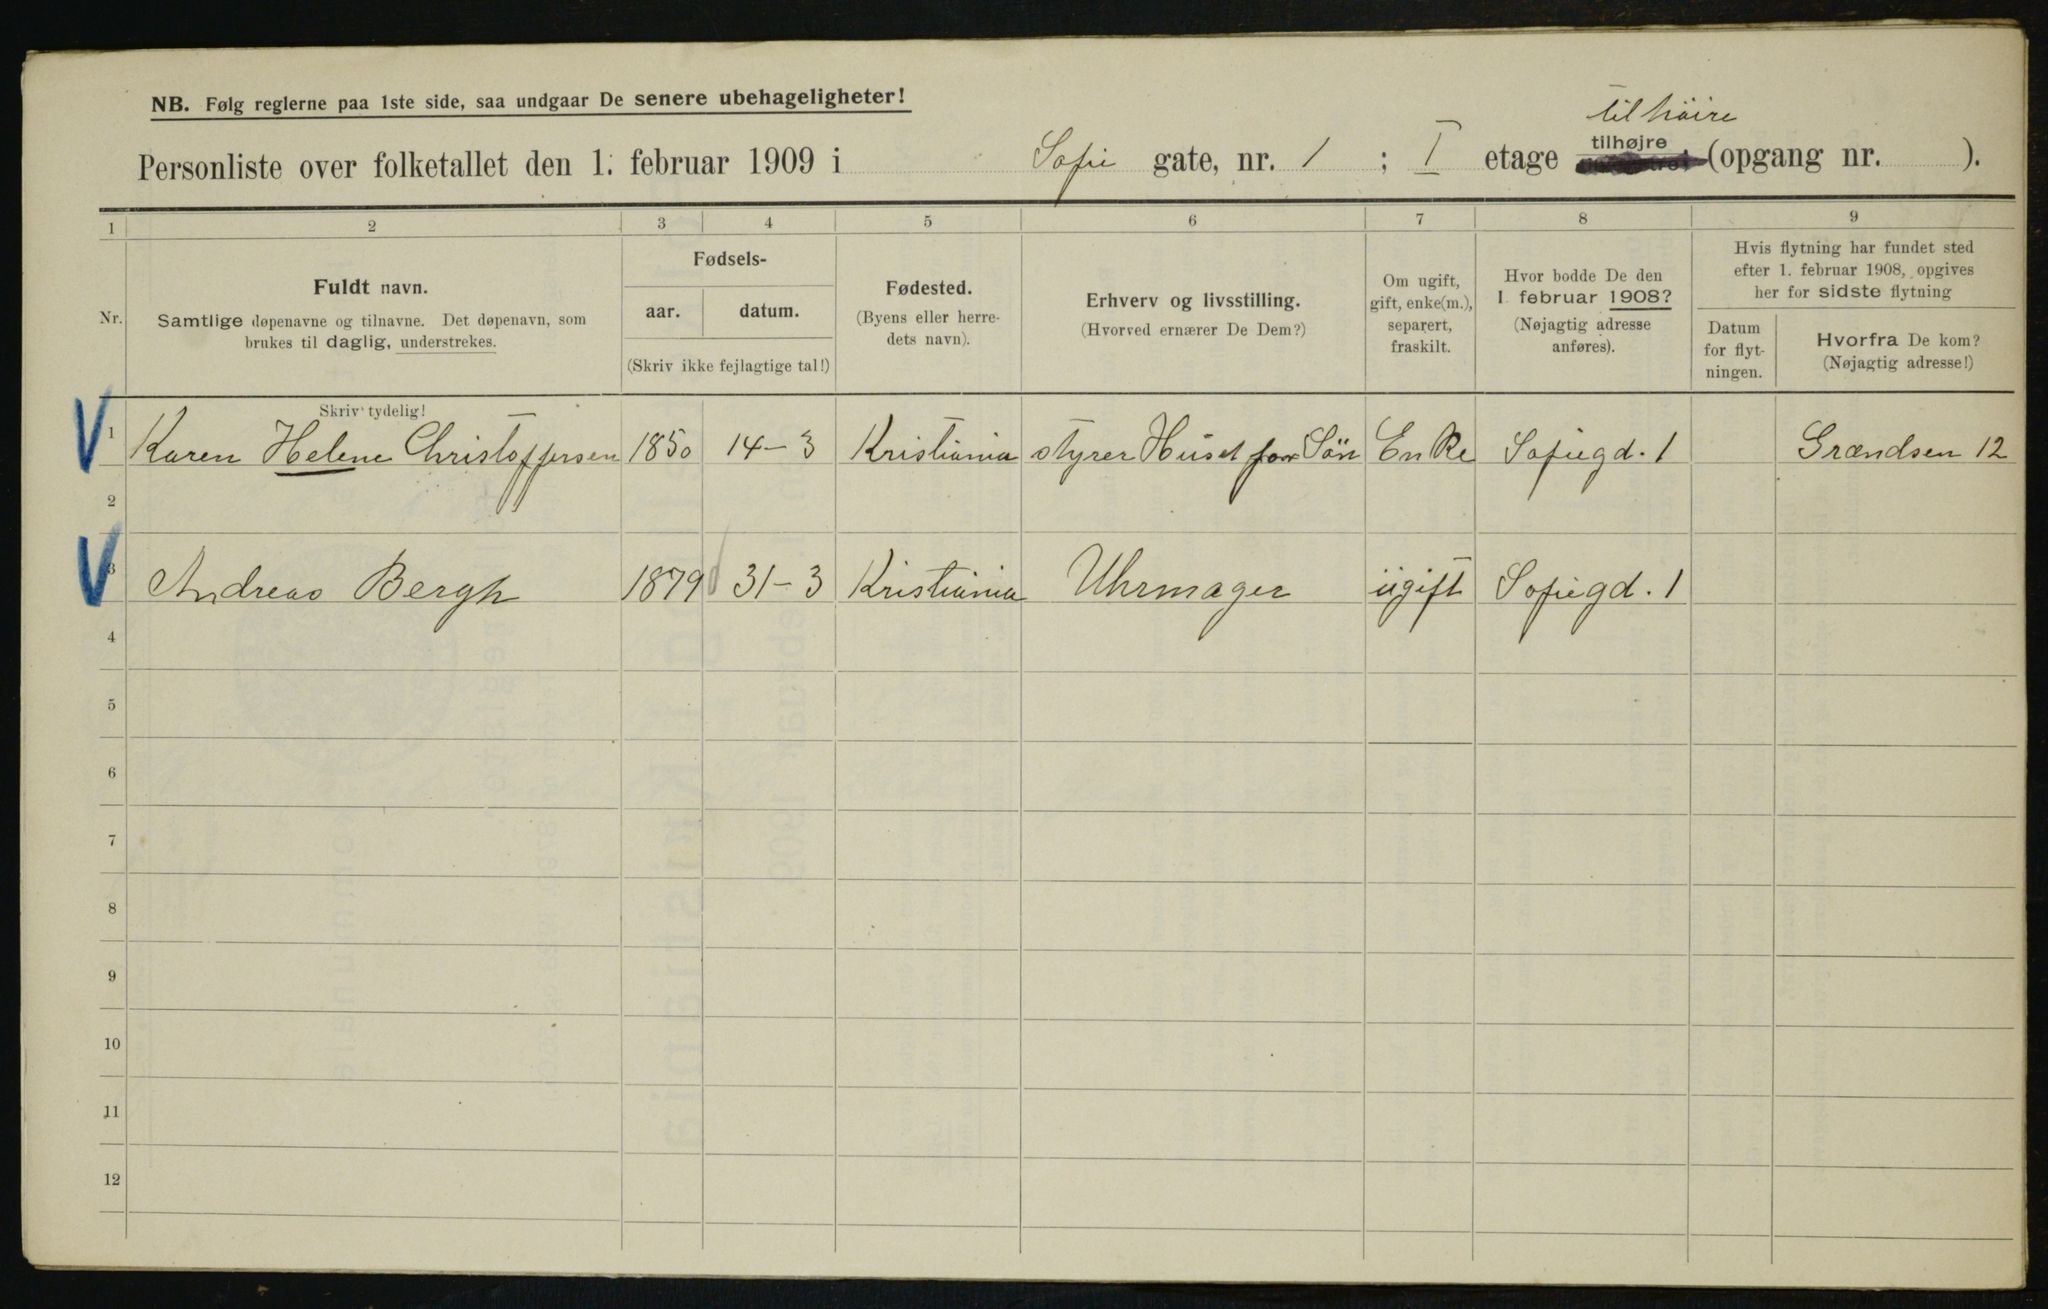 NB. Følg reglerne paa 1ste side, saa undgaar De senere ubehageligheter!
til høire
Personliste over folketallet den 1. februar 1909 i Sofie gate, nr. 1 ; I etage tilhøjre (opgang nr. ).
1 2 3 4 5 6 7 8 9
Nr.
Fuldt navn.
Samtlige døpenavne og tilnavne. Det døpenavn, som
brukes til daglig, understrekes.
Skriv tydelig!
Fødsels-
aar. datum.
(Skriv ikke fejlagtige tal!)
Fødested.
(Byens eller herre-
dets navn).
Erhverv og livsstilling.
(Hvorved ernærer De Dem?)
Om ugift,
gift, enke(m.),
separert,
fraskilt.
Hvor bodde De den
1. februar 1908?
(Nøjagtig adresse
anføres).
Hvis flytning har fundet sted
efter 1. februar 1908, opgives
her for sidste flytning
Datum
for flyt-
ningen.
Hvorfra De kom?
(Nøjagtig adresse!)
1 Karen Helene Christoffersen 1850 14-3 Kristiania styrer Huset for Sön Enke Sofiegd. 1 Grændsen 12
2
3 Andreas Bergh 1879 31-3 Kristiania Uhrmager ugift Sofiegd. 1
4
5
6
7
8
9
10
11
12